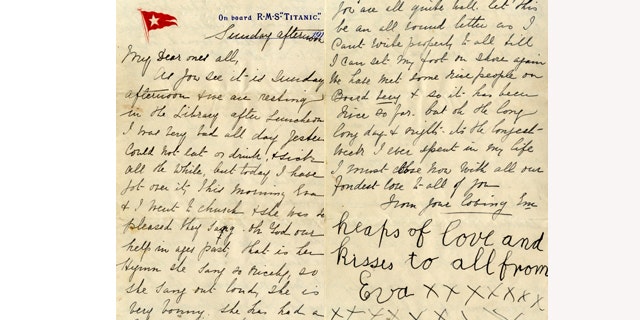 On board R·M·S "TITANIC."
Sunday afternoon
My Dear ones all,
As you see it is Sunday
afternoon & we are resting
in the Library after Luncheon
I was very bad all day Yester
Could not eat or drink, & sick
all the while, but today I have
got over it, This morning Eva
& I went to church & she was so
pleased they Sang oh God our
help in ages past, that is her
Hymn she Sang so Nicely, so
she Sang out loud, she is
very bonny, she has had a
You are all quite well. let this
be an all round letter as I
Cant write properly to all till
I can set my foot on shore again
We have met some Nice people on
Board Lucy & so it has been
Nice so far. but oh the long
long day & nights. its the longest
Week I ever spent in my life
I must close Now With all our
Fondest love to all of you
From Your loving Em
heaps of love and
kisses to all from
Eva x x x x x x x
x x x x x x x